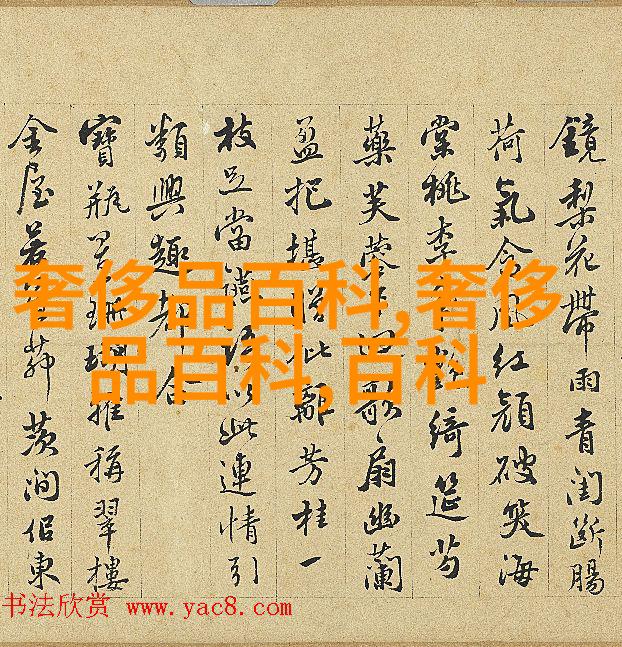 鏡梨花帶雨青閨斷腸
荷氣含風紅顏破笑海
棠桃李綺筵芍
藥芙蓉歌扇幽蘭
盈把堪贈此離芳桂一
枝足當讌語以此連情引
類興趣都合
寶瓶珊瑚推稱翠樓
金屋若澗侶東
奢侈品百科,奢侈
品百科,百科
书法欣赏 www.yac8.com